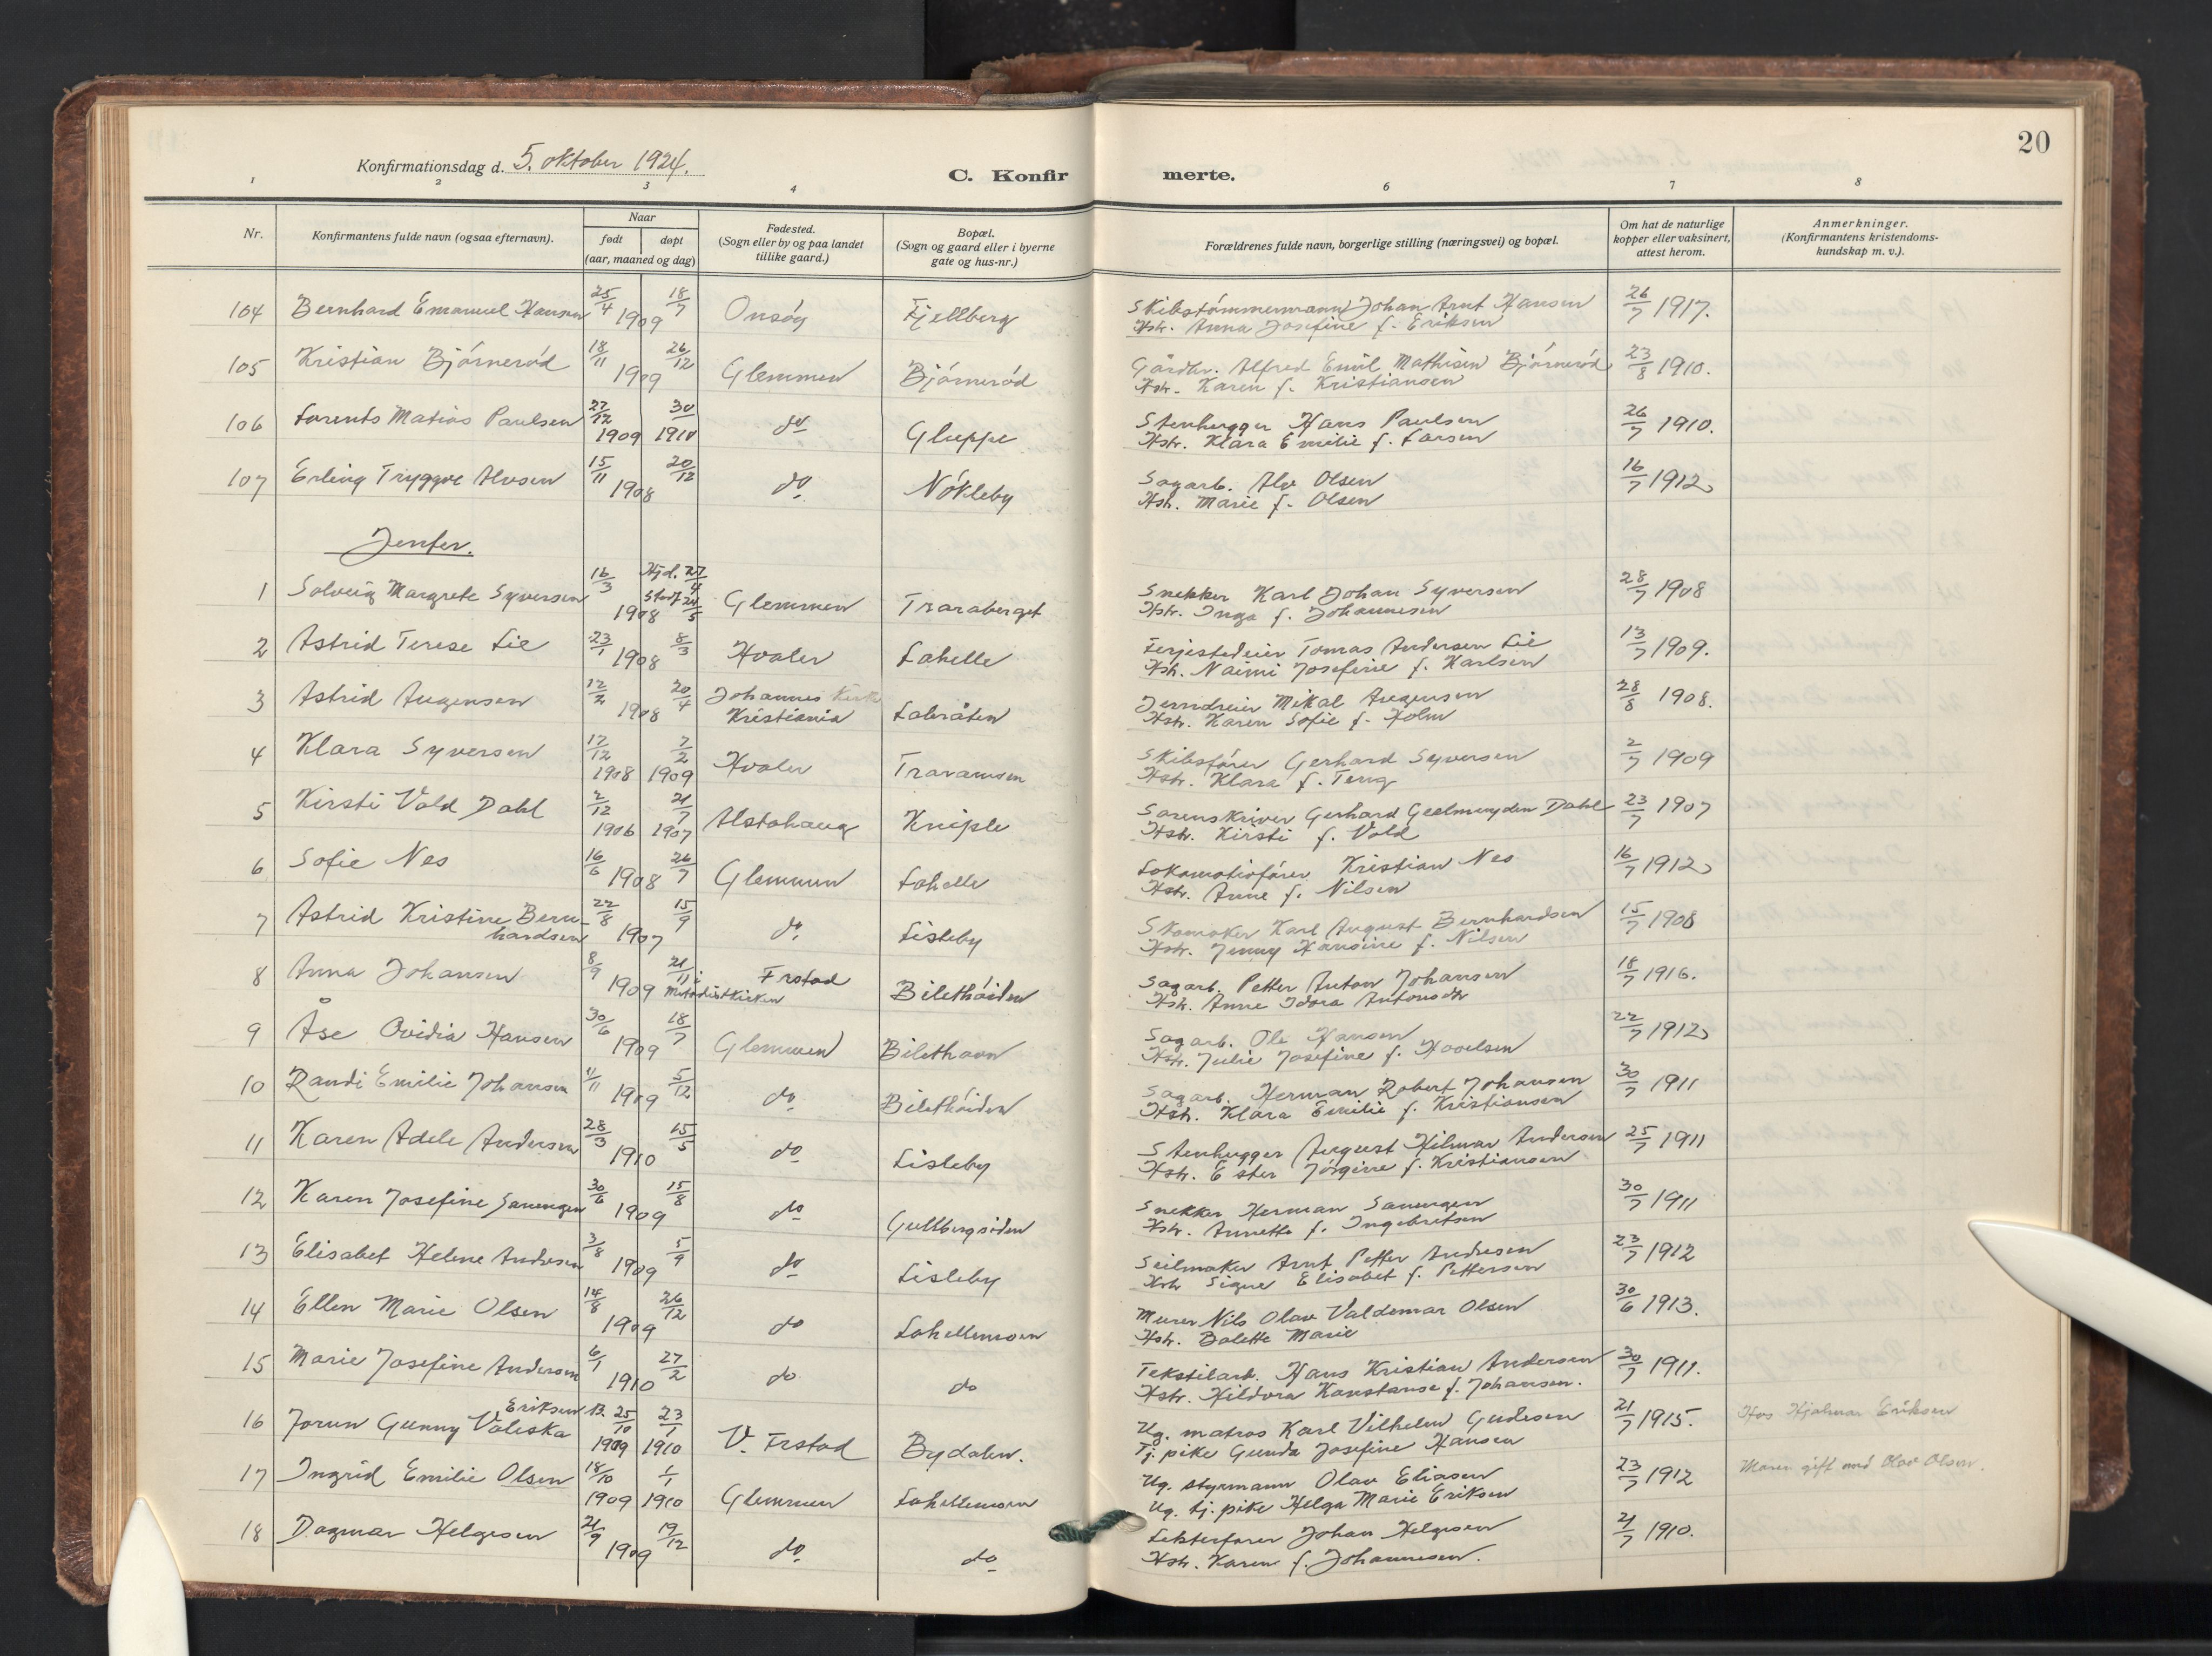 20
Konfirmationsdag d. 5. oktober 1924.
C. Konfirmerte.
1 2 3 4 6 7 8
Nr.
Konfirmantens fulde navn (ogsaa efternavn).
Naar
født døpt
(aar, maaned og dag)
Fødested.
(Sogn eller by og paa landet
tillike gaard.)
Bopæl.
(Sogn og gaard eller i byerne
gate og hus-nr.)
Forældrenes fulde navn, borgerlige stilling (næringsvei) og bopæl.
Om hat de naturlige
kopper eller vaksinert,
attest herom.
Anmerkninger.
(Konfirmantens kristendoms-
kundskap m. v.).
104 Bernhard Emanuel Hansen 25/4 1909 18/7 Onsøy Fjellberg Skibstømmermann Johan Arnt Hansen 26/7 1917.
Hstr. Anna Josefine f. Eriksen
105 Kristian Bjørnerød 18/11 1909 26/12 Glemmen Bjørnerød Gårdbr. Alfred Emil Mathisen Bjørnerød 23/8 1910.
Hstr. Karen f. Kristiansen
106 Lorents Matias Paulsen 27/12 1909 30/ 1910 do Gluppe Stenhugger Hans Paulsen 26/7 1910.
Hstr. Klara Emilie f. Larsen
107 Erling Tryggve Alvsen 15/11 1908 20/12 do Nökleby Sagarb. Alv Olsen 16/7 1912
Hstr. Marie f. Olsen
Jenter.
1 Solveig Margrete Syversen 16/3 1908 Hjd. 27/4 Stadf. 24/5 Glemmen Traraberget Snekker Karl Johan Syversen 28/7 1908
Hstr. Inga f. Johannesen
2 Astrid Terese Lie 23/1 1908 8/3 Hvaler Lahelle Ferjestedeier Tomas Andersen Lie 13/7 1909.
Hstr. Naimi Josefine f. Karlsen
3 Astrid Augensen 12/2 1908 20/4 Johannes Kirke Kristiania Labråten Mikal Augensen 28/8 1908.
Hstr. Karen Sofie f. Holm
4 Klara Syversen 17/12 1908 7/2 1909 Hvaler Skibsfører Gerhard Syversen 2/7 1909
Hstr. Klara f. Teng
5 Kirsti Vold Dahl 2/12 1906 21/7 1907 Alstahaug Kniple Sorenskriver Gerhard Geelmuyden Dahl 23/7 1907
Hstr. Kirsti f. Vold
6 Sofie Nes 16/6 1908 26/7 Glemmen Lahelle Lokomotivfører Kristian Nes 16/7 1912
Hstr. Anne f. Nilsen
7 Astrid Kristine Bern-
hardsen 22/8 1907 15/9 do. Lisleby Skomaker Karl August Bernhardsen 15/7 1908
Hstr. Jenny Hansine f. Nilsen
8 Anna Johansen 8/9 1909 21/11 i Metodistkirken Frstad Bilethøiden Sagarb. Petter Anton Johansen 18/7 1916.
Hstr. Anne Idora Antonsdtr
9 Åse Ovidia Hansen 30/6 1909 18/7 Glemmen Bilethavn Sagarb. Ole Hansen 22/7 1912
Hstr. Julie Josefine f. Hovelsen
10 Randi Emilie Johansen 11/11 1909 5/12 do. Bilethöiden Sagarb. Herman Robert Johansen 30/7 1911
Hstr. Klara Emilie f. Kristiansen
11 Karen Adele Andersen 28/3 1910 15/5 do Lisleby Stenhugger August Hilmar Andersen 25/7 1911
Hstr. Ester Jörgine f. Kristiansen
12 Karen Josefine Sanengen 30/6 1909 15/8 do Gullbergsiden Snekker Herman Sanengen 30/7 1911
Hstr. Annette f. Ingebretsen
13 Elisabet Helene Andresen 3/8 1909 5/9 do Lisleby Seilmaker Arnt Petter Andresen 23/7 1912
Hstr Signe Elisabet f. Pettersen
14 Ellen Marie Olsen 14/8 1909 26/12 do Lahellemoen Murer Nils Olav Valdemar Olsen 30/6 1913.
Hstr. Balette Marie
15 Marie Josefine Andersen 6/1 1910 27/2 do do Tekstilarb. Hans Kristian Andersen 30/7 1911.
Hstr. Hildora Konstanse f. Johansen.
16 Jorun Gunny Valeska Eriksen 25/10 1909 23/1 1910 V. Frstad Bydalen. Ug. matros Karl Vilhelm Gudesen 21/7 1915. Hos Hjalmar Eriksen
Tj. pike Gunda Josefine Hansen
17 Ingrid Emilie Olsen 18/10 1909 1/1 1910 Glemmen Lahellemoen Ug. styrmann Olav Eliasen 23/7 1912 Moren gift med Olav Olsen.
Ug. tj. pike Helga Marie Eriksen
18 Dagmar Helgesen 21/9 1909 19/12 do. do Lekterfører Johan Helgesen 21/7 1910.
Hstr. Karen f. Johannesen.